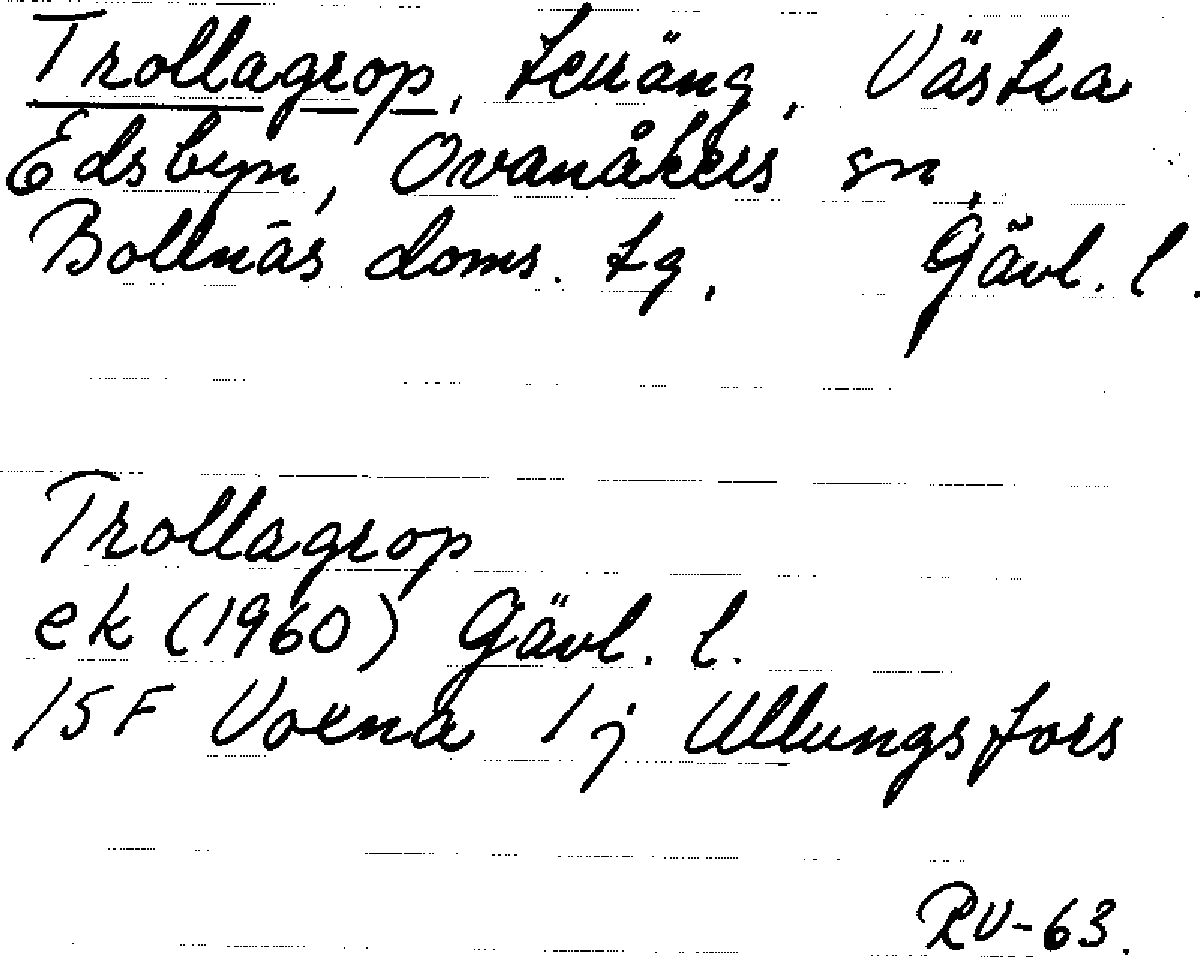 Trollagrop, teräng, Västra
Edsbyn, Ovanåkers sn,
Bollnäs doms. tg, Gävl. l.
Trollagrop
ek (1960) Gävl. l.
15F Voxna 1j Ullungsfors
RV-63.